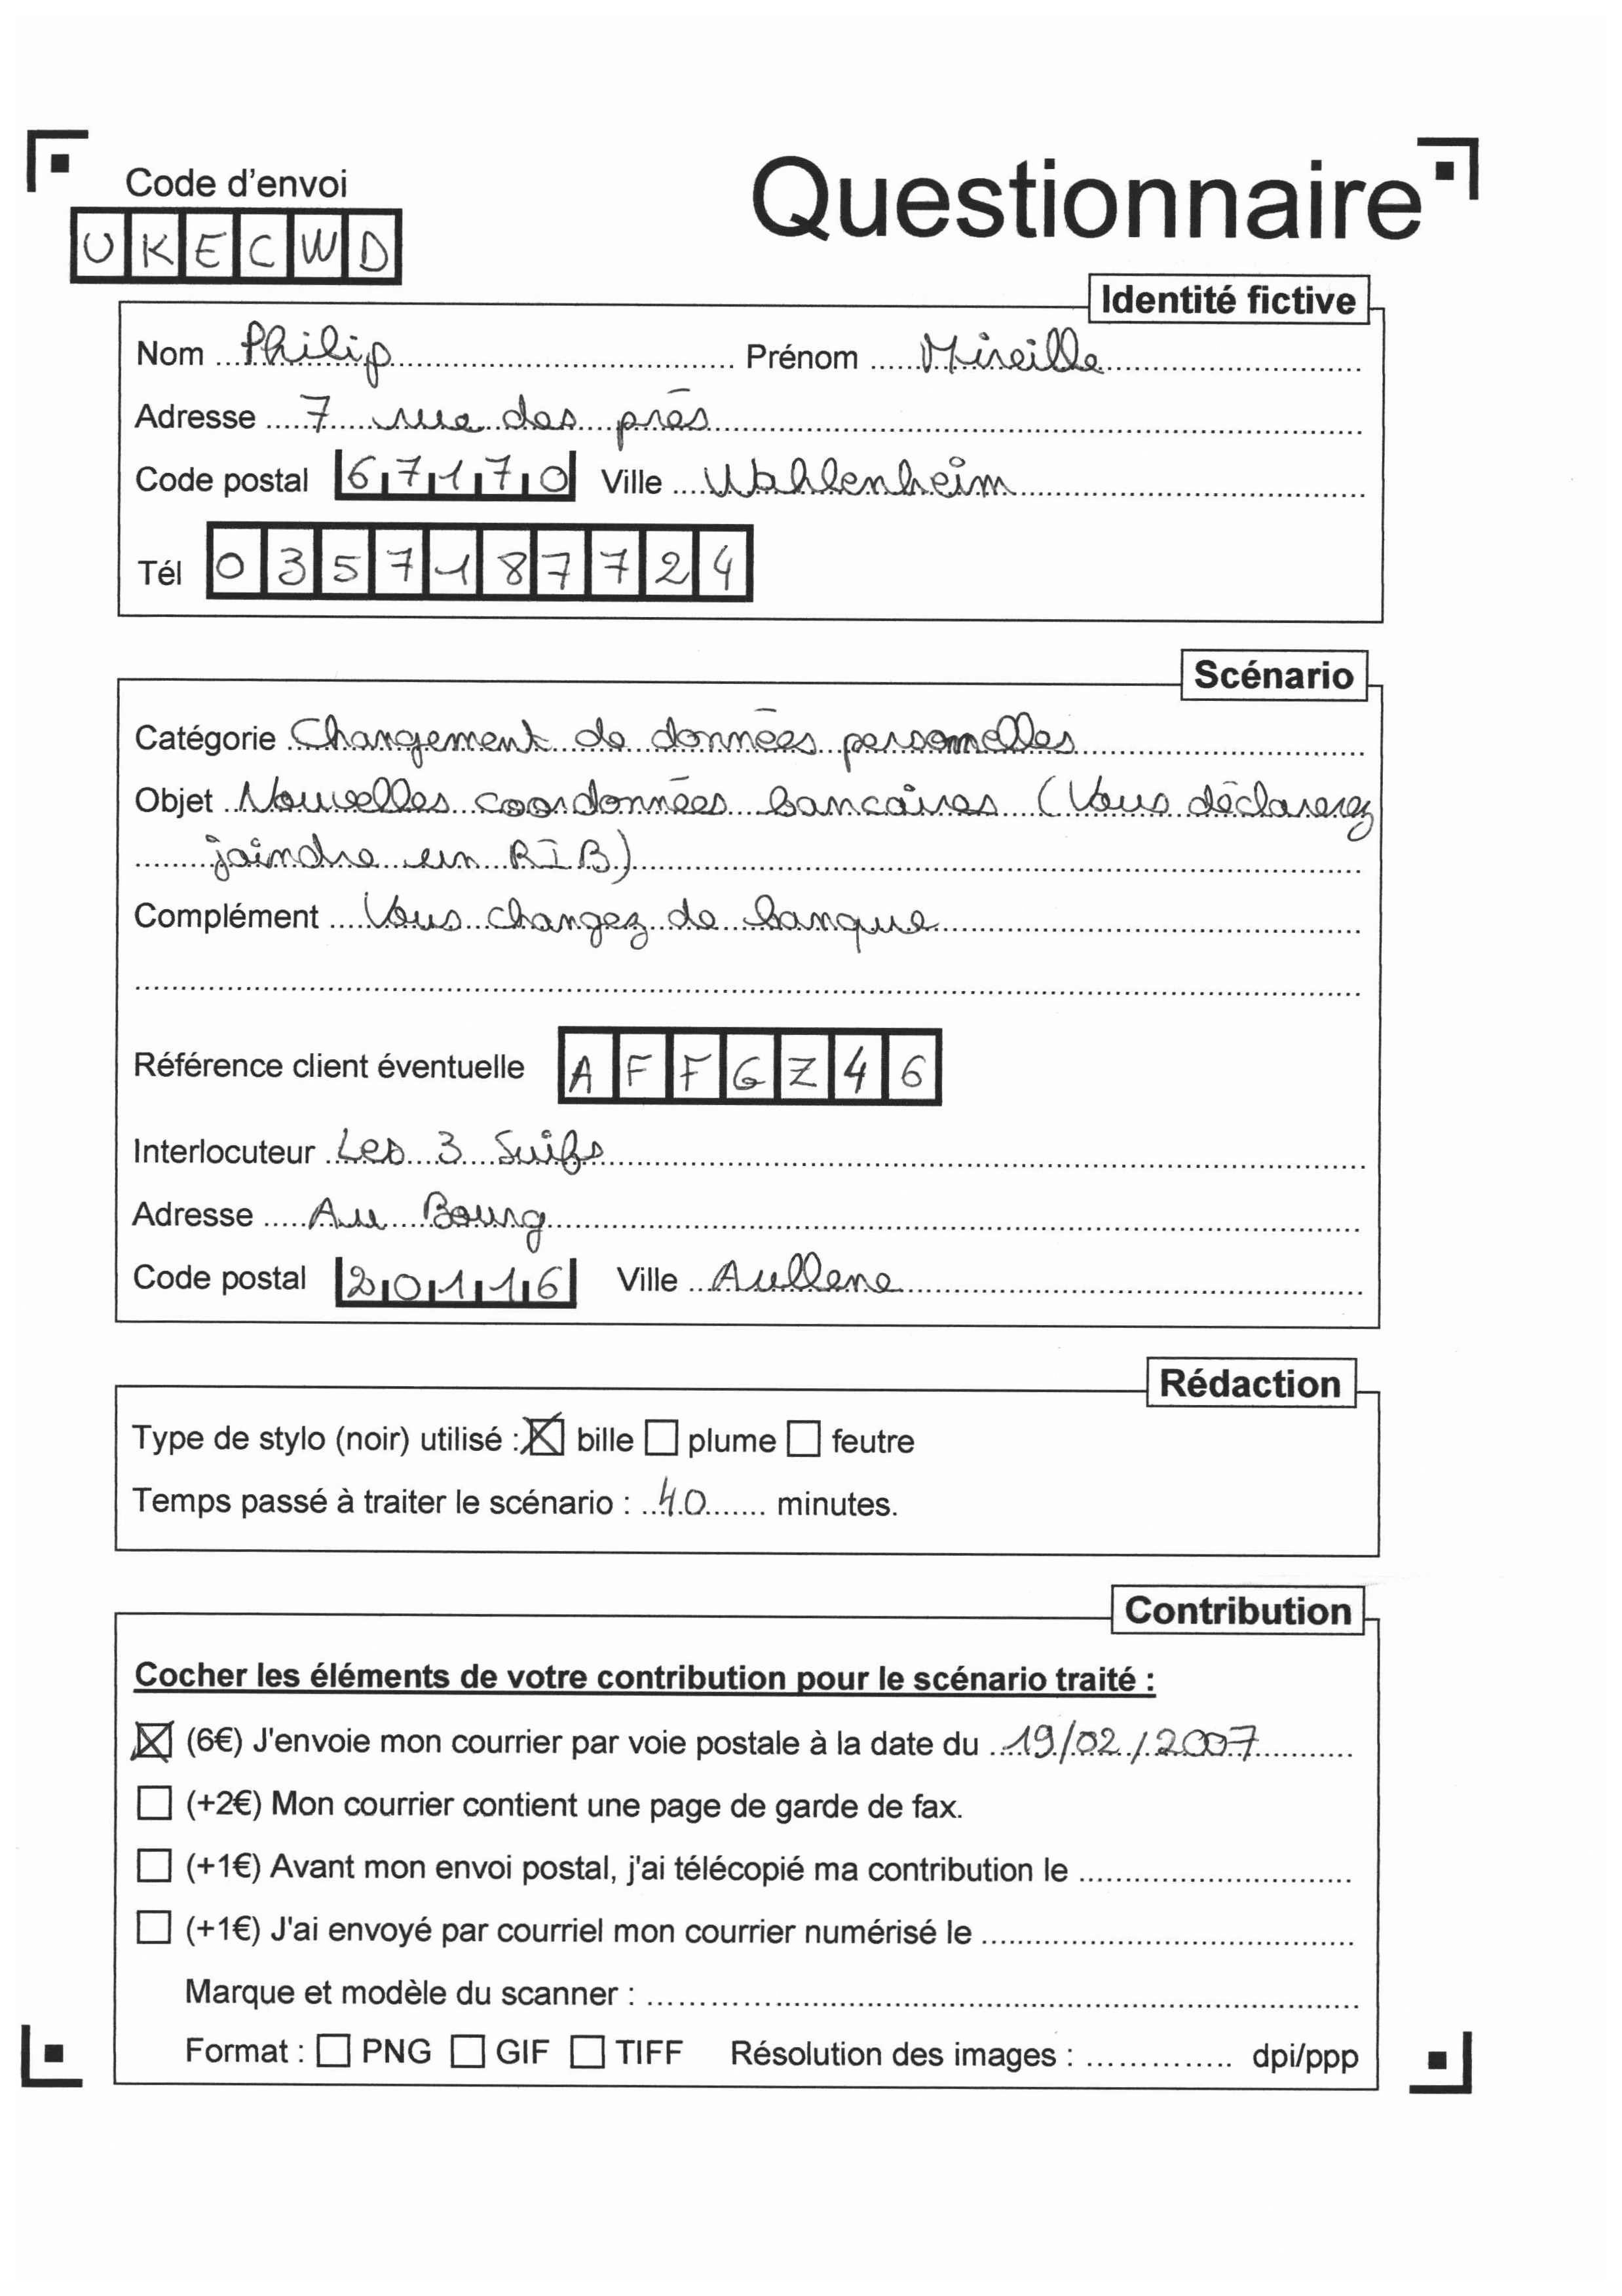 Code d'envoi
Questionnaire
UKECWD
Identité fictive
Nom Philip Prénom Mireille
Adresse 7 rue des prés
Code postal 67170 Ville Wahlenheim
Tél 0357187724
Scénario
Catégorie Changement de données personnelles
Objet Nouvelles coordonnées bancaires (Vous déclarerez
joindre un RIB)
Complément Vous changez de banque
Référence client éventuelle AFFGZ46
Interlocuteur Les 3 Suifs
Adresse Au Bourg
Code postal 20116 Ville Aullene
Rédaction
Type de stylo (noir) utilisé : ☒ bille ☐ plume ☐ feutre
Temps passé à traiter le scénario : 40 minutes.
Contribution
Cocher les éléments de votre contribution pour le scénario traité :
☒ (6€) J'envoie mon courrier par voie postale à la date du 19/02/2007
☐ (+2€) Mon courrier contient une page de garde de fax.
☐ (+1€) Avant mon envoi postal, j'ai télécopié ma contribution le
☐ (+1€) J'ai envoyé par courriel mon courrier numérisé le
Marque et modèle du scanner :
Format : ☐ PNG ☐ GIF ☐ TIFF Résolution des images : dpi/ppp